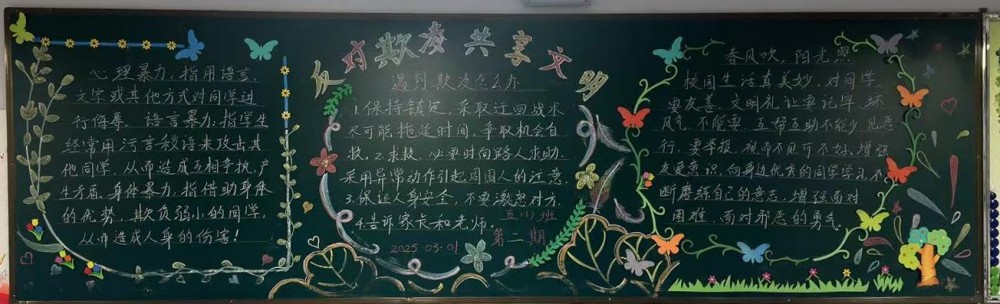 反对欺凌共享文明
心理暴力:指用语言、
文字或其他方式对同学进
行侮辱。语言暴力:指学生
经常用污言秽语来攻击其
他同学,从而造成互相争执,产
生矛盾。身体暴力:指借助身体
的优势,欺负弱小的同学,
从而造成人身的伤害!
遇到欺凌怎么办
1.保持镇定,采取迂回战术
尽可能拖延时间,争取机会自
救。2.求救,必要时向路人求助,
采用异常动作引起周围人的注意.
3.保证人身安全,不要激怒对方.
4.告诉家长和老师.
五(1)班
2025.03.01
第二期
春风吹,阳光照
校园生活真美妙,对同学,
要友善,文明礼让要记牢,坏
风气,不能要,互帮互助不能少,见恶
行,要举报,视而不见可不好,增强
友爱意识,向身边优秀的同学学习,不
断磨练自己的意志,增强面对
困难,面对邪恶的勇气